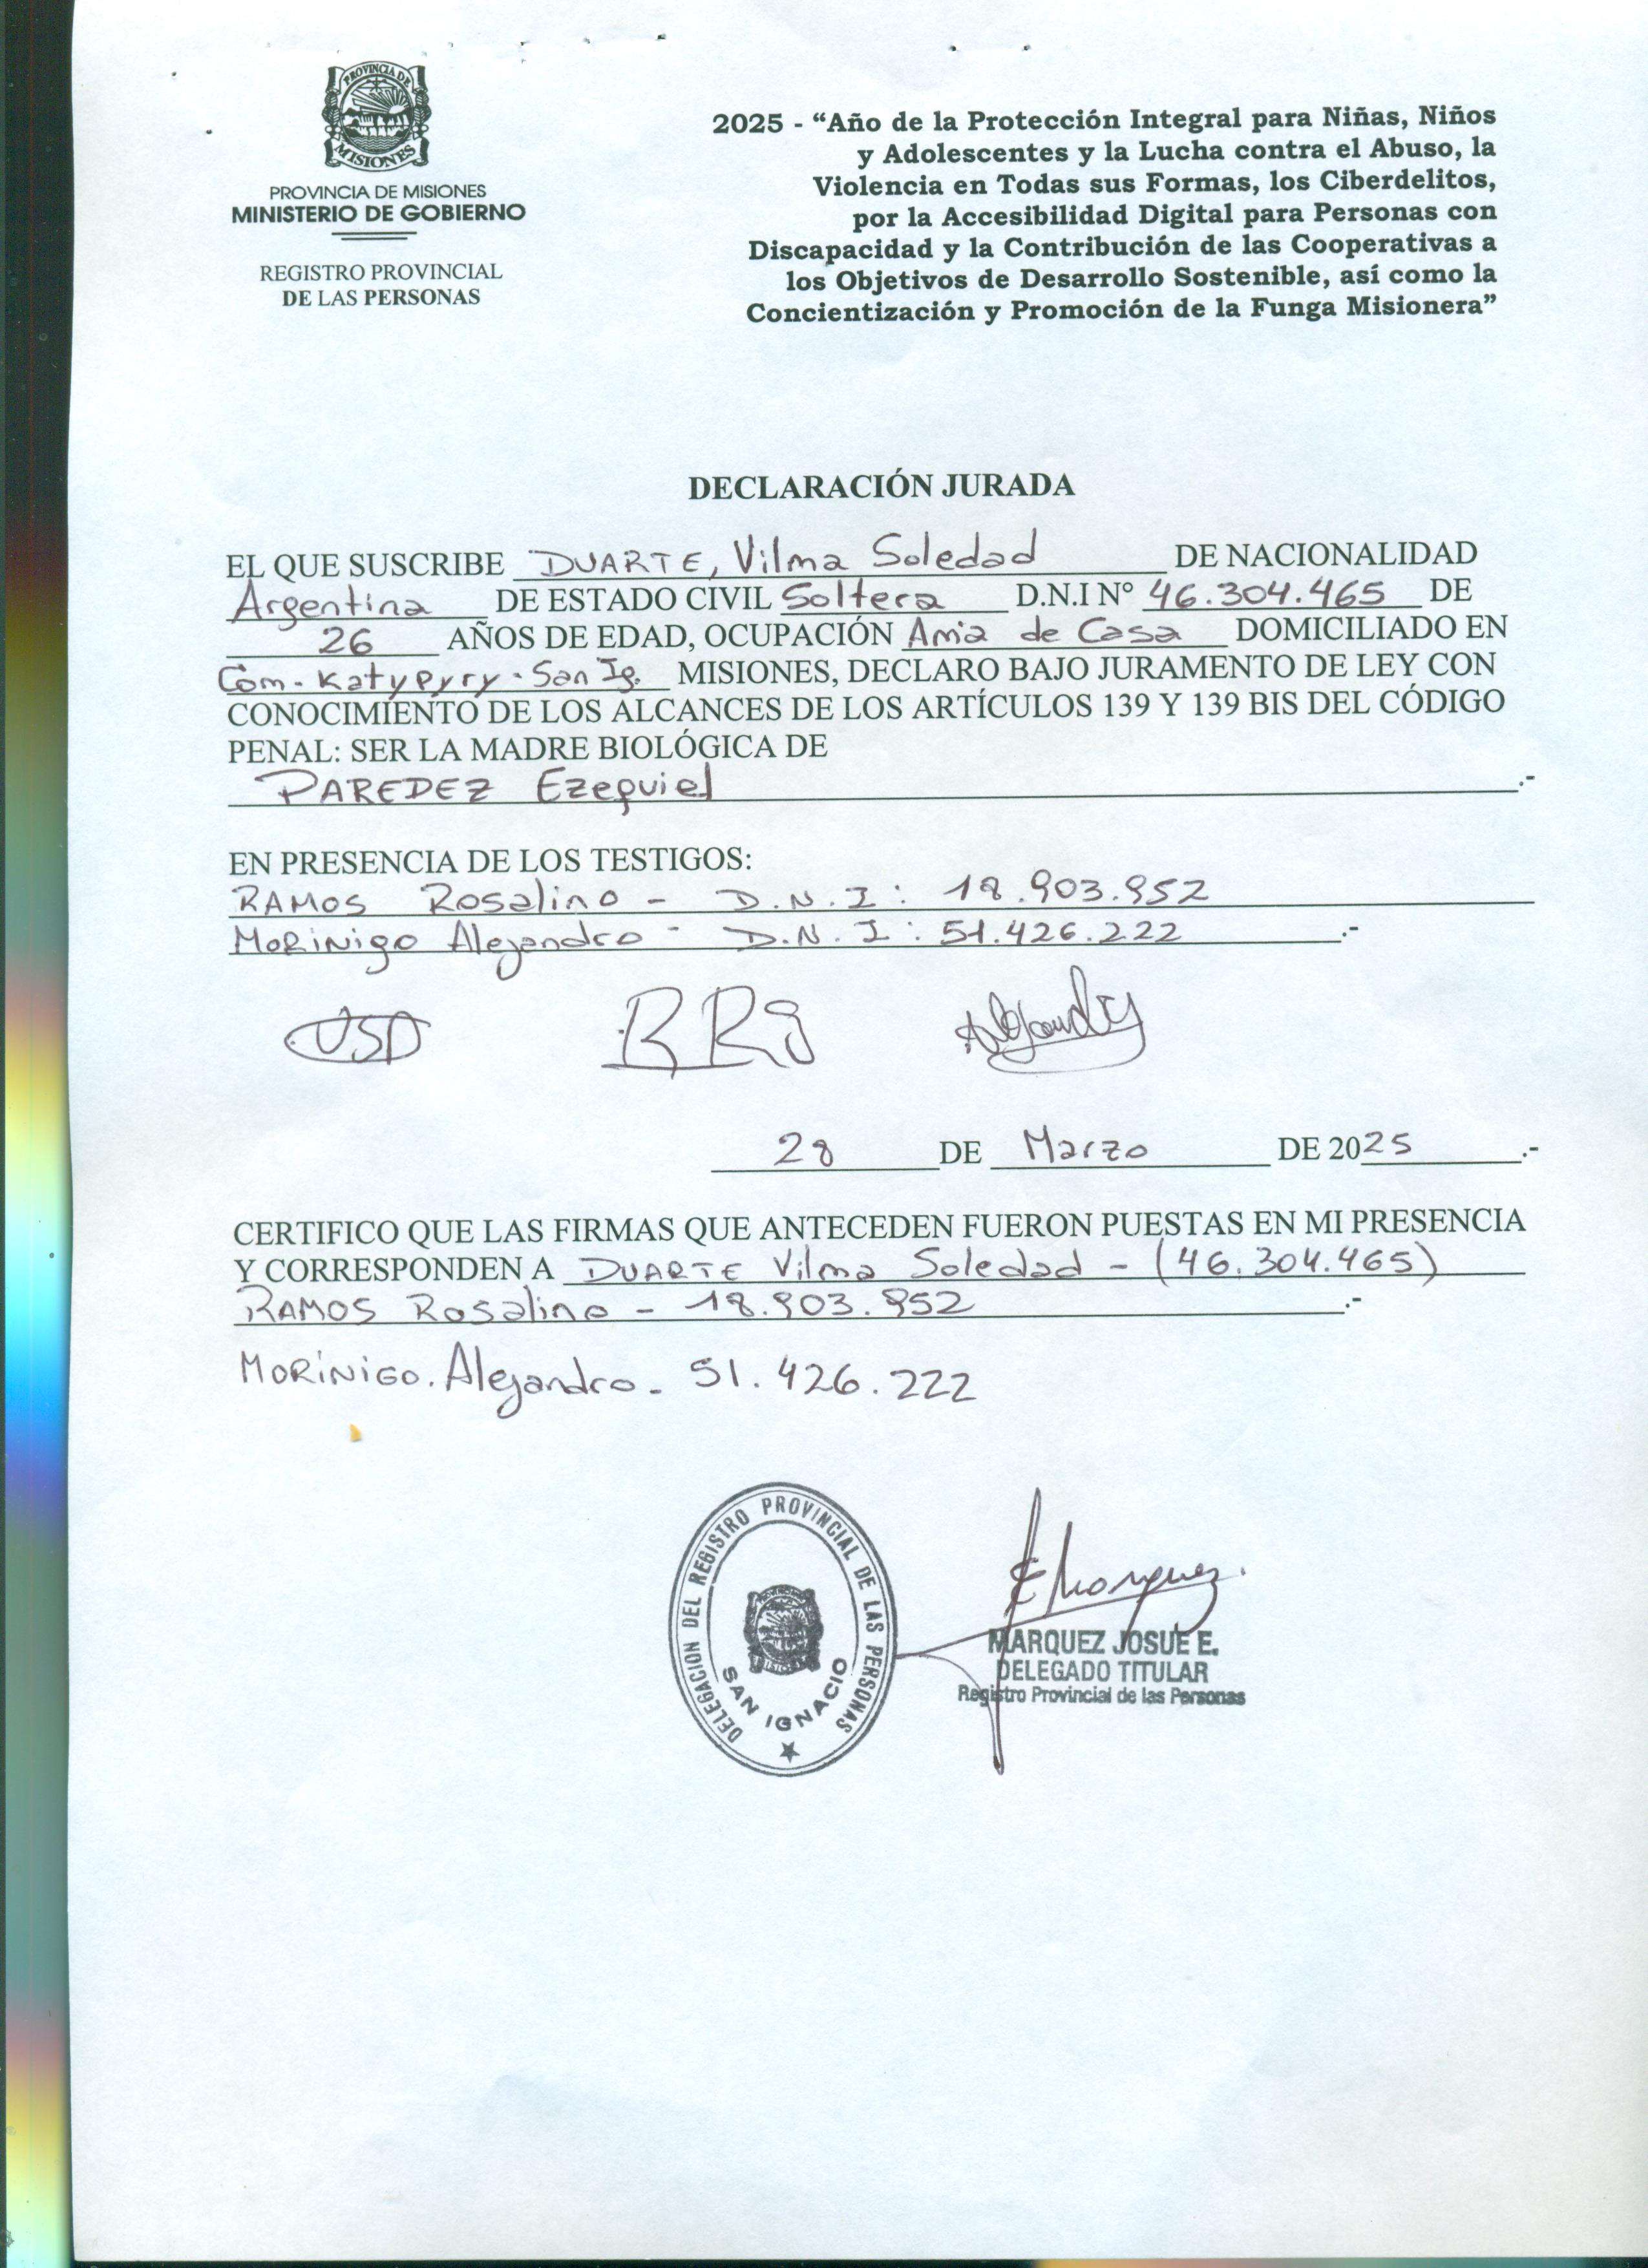 PROVINCIA DE
MISIONES
PROVINCIA DE MISIONES
MINISTERIO DE GOBIERNO
REGISTRO PROVINCIAL
DE LAS PERSONAS
2025 - “Año de la Protección Integral para Niñas, Niños
y Adolescentes y la Lucha contra el Abuso, la
Violencia en Todas sus Formas, los Ciberdelitos,
por la Accesibilidad Digital para Personas con
Discapacidad y la Contribución de las Cooperativas a
los Objetivos de Desarrollo Sostenible, así como la
Concientización y Promoción de la Funga Misionera”
DECLARACIÓN JURADA
EL QUE SUSCRIBE DUARTE, Vilma Soledad DE NACIONALIDAD
Argentina DE ESTADO CIVIL Soltera D.N.I N° 46.304.465 DE
26 AÑOS DE EDAD, OCUPACIÓN Ama de Casa DOMICILIADO EN
Com. Katypyry. San Ig. MISIONES, DECLARO BAJO JURAMENTO DE LEY CON
CONOCIMIENTO DE LOS ALCANCES DE LOS ARTÍCULOS 139 Y 139 BIS DEL CÓDIGO
PENAL: SER LA MADRE BIOLÓGICA DE
PAREDEZ Ezequiel .-
EN PRESENCIA DE LOS TESTIGOS:
RAMOS Rosalino - D.N.I: 18.903.952
MORINIGO Alejandro - D.N.I: 51.426.222 .-
VSD
RRg
Alejandro
28 DE Marzo DE 2025 .-
CERTIFICO QUE LAS FIRMAS QUE ANTECEDEN FUERON PUESTAS EN MI PRESENCIA
Y CORRESPONDEN A DUARTE Vilma Soledad - (46.304.465)
RAMOS Rosalino - 18.903.952 .-
MORINIGO. Alejandro - 51.426.222
DELEGACION DEL REGISTRO PROVINCIAL DE LAS PERSONAS
SAN IGNACIO
EMarquez.
MARQUEZ JOSUE E.
DELEGADO TITULAR
Registro Provincial de las Personas